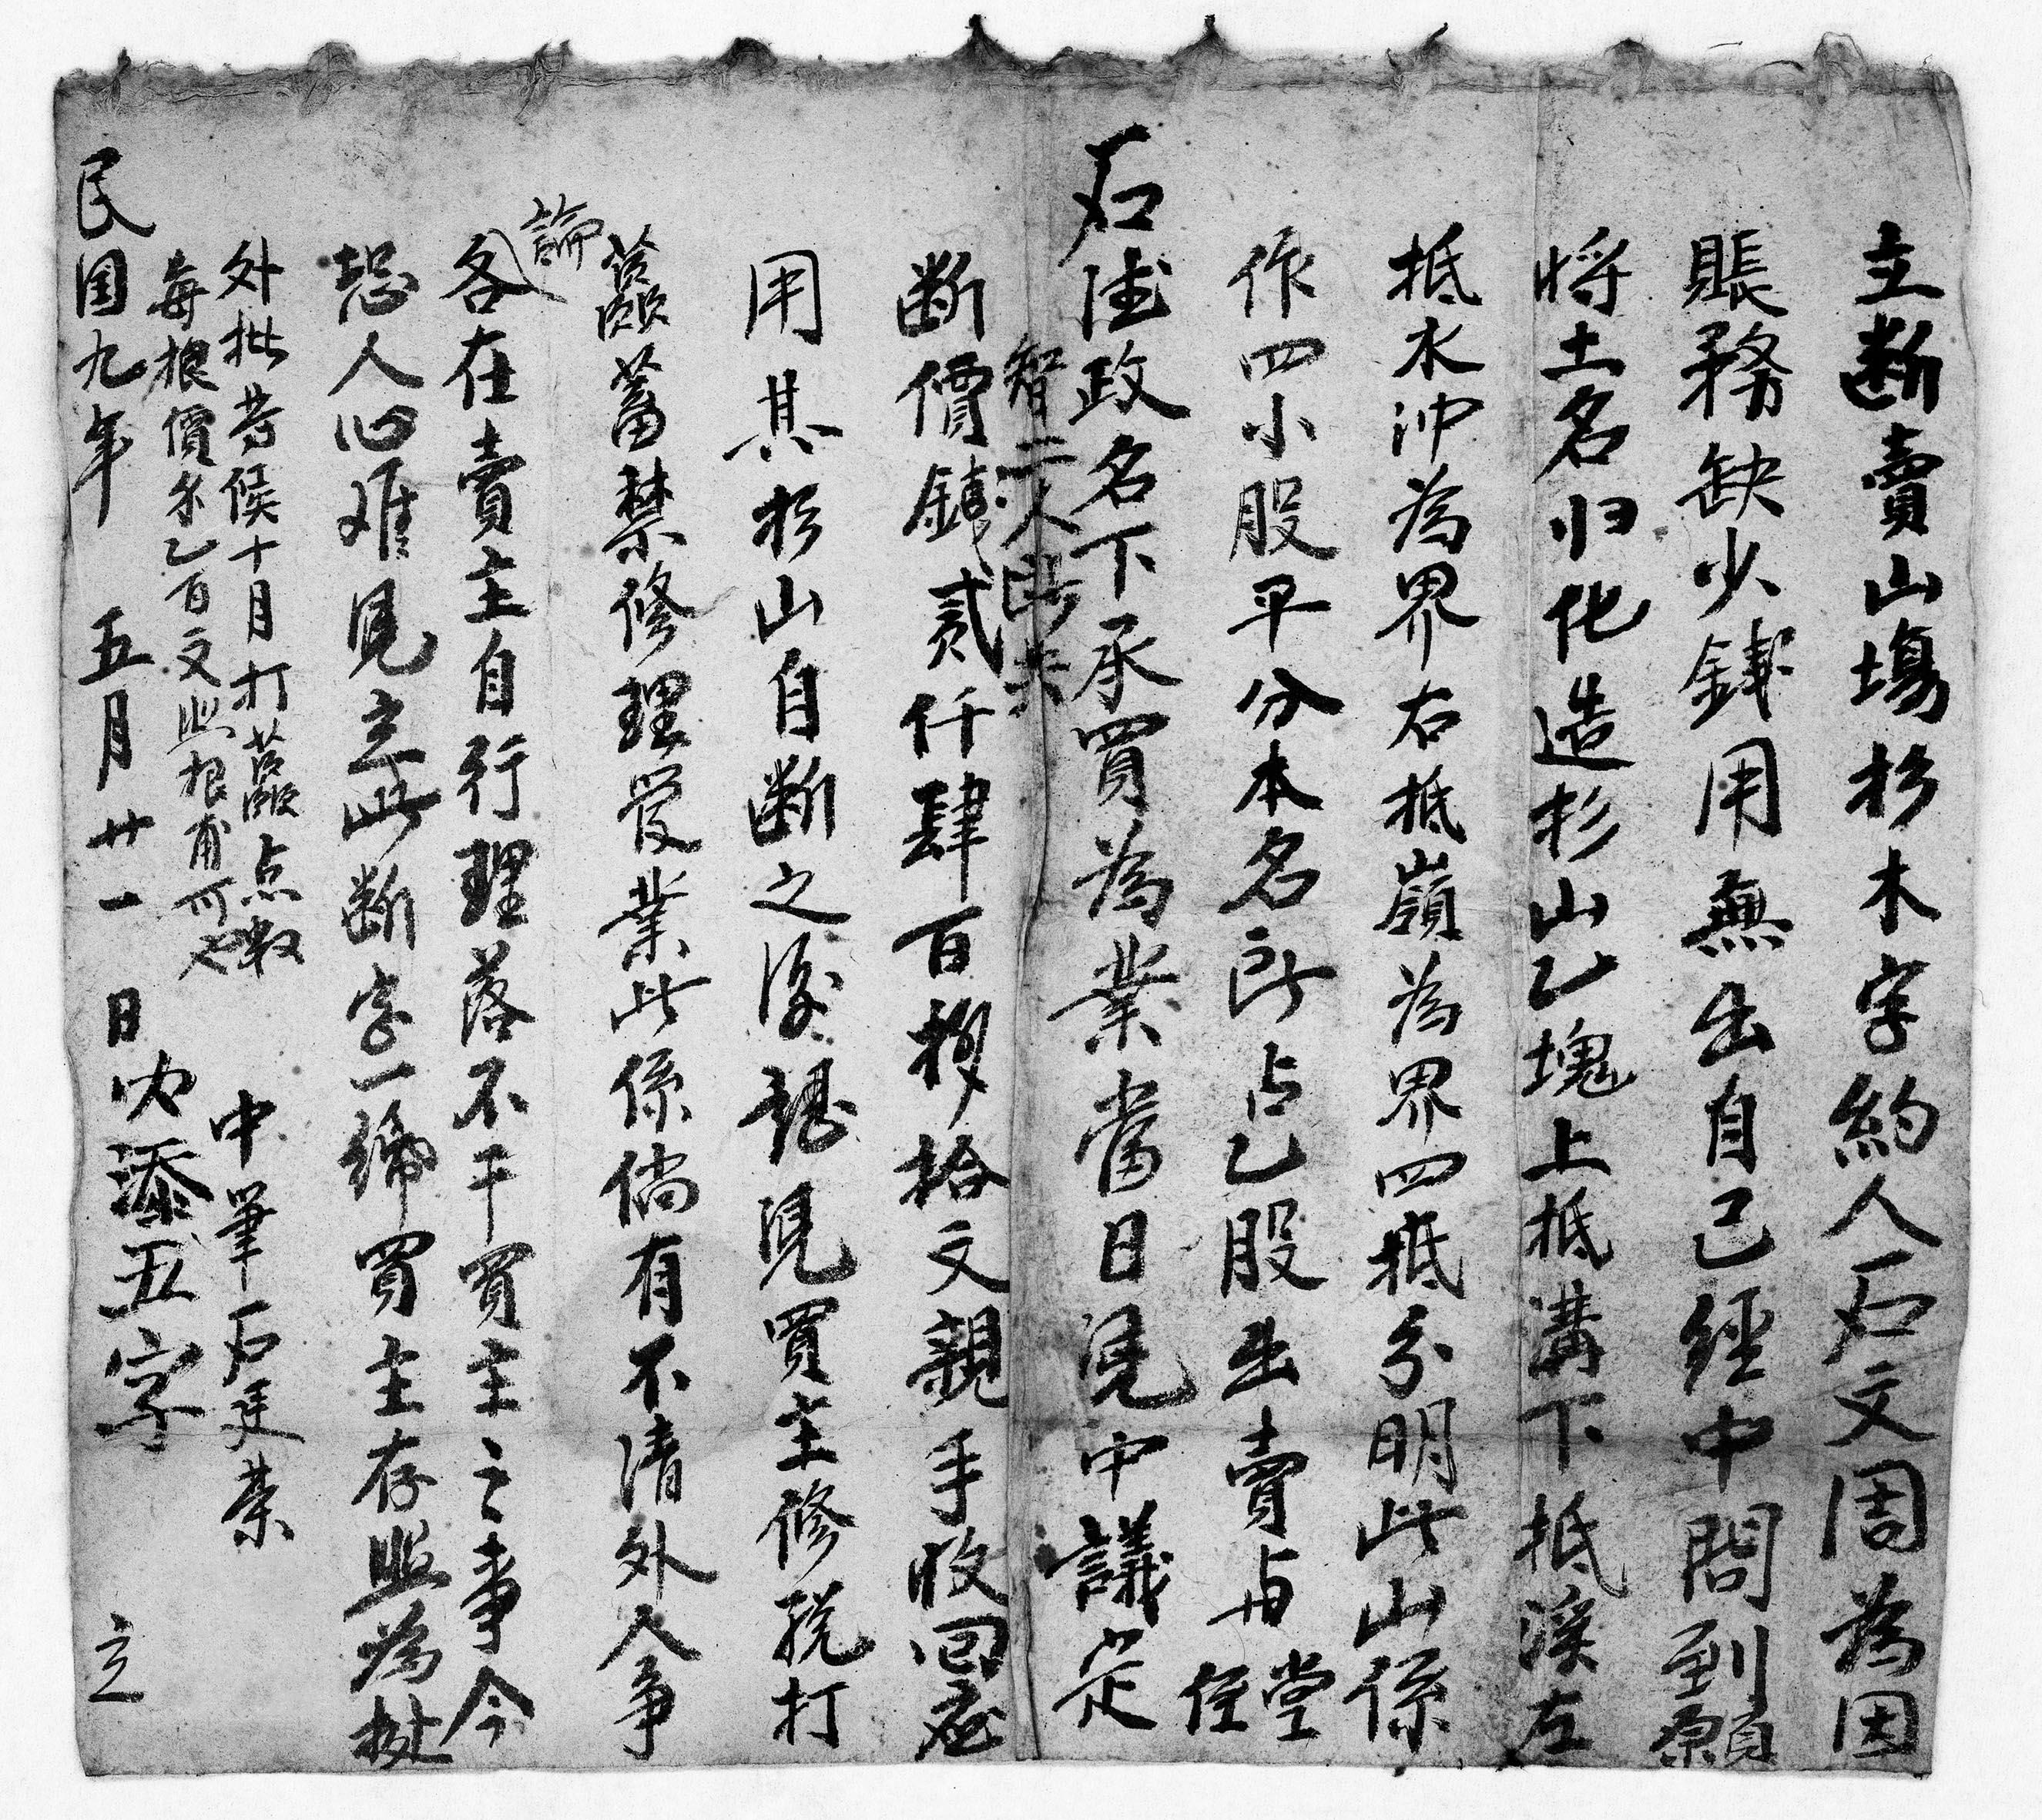 立断賣山塲杉木字約人石文周為因
賬務缺少錢用無出自己經中問到願
将土名归化造杉山乙塊上抵溝下抵溪左
抵水冲為界右抵嶺為界四抵分明此山係
作四小股平分本名所占乙股出賣与堂侄
石德政名下承買為業當日凴中議定
智二人
断價錢貳仟肆百捌拾文親手收回應
用其杉山自断之後聽凴買主修剪打
蓄禁修理管業此係倘有不清外人争
論
各在賣主自行理落不干買主之事今
恐人心难凴立此断字一纸買主存照為据
外批昔候十月打点数
每根價禾乙百文照根甫可也
中筆石廷荣
民国九年五月廿一日内添五字 立